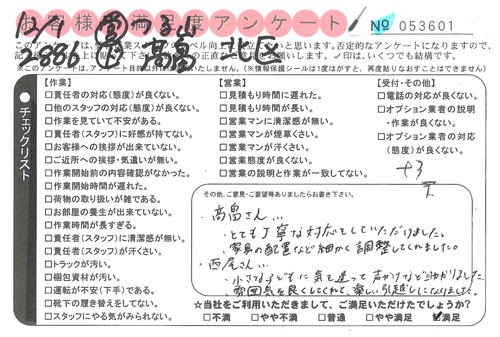 お客様満足度アンケート
№ 053601
12/1 営 つるい
2886 高畠 北区
※このアンケートは、アンケート目的以外は使用いたしません。(※情報保護シールは1度はがすと、再度貼りなおすことはできません)
チェックリスト
【作業】
□責任者の対応(態度)が良くない。
□他のスタッフの対応(態度)が良くない。
□作業を見ていて不安がある。
□責任者(スタッフ)に好感が持てない。
□お客様への挨拶が出来ていない。
□ご近所への挨拶・気遣いが無い。
□作業開始前の内容確認がなかった。
□作業開始時間が遅れた。
□荷物の取り扱いが雑である。
□お部屋の養生が出来ていない。
□作業時間が長すぎる。
□責任者(スタッフ)に清潔感が無い。
□責任者(スタッフ)が汗くさい。
□トラックが汚い。
□梱包資材が汚い。
□運転が不安(下手)である。
□靴下の履き替えをしてない。
□スタッフにやる気がみられない。
【営業】
□見積もり時間に遅れた。
□見積もり時間が長い。
□営業マンに清潔感が無い。
□営業マンが煙草くさい。
□営業マンが汗くさい。
□営業態度が良くない。
□営業の説明と作業が一致してない。
【受付・その他】
□電話の対応が良くない。
□オプション業者の説明
・作業が良くない。
□オプション業者の対応
(態度)が良くない。
+3
その他、ご意見・ご要望等ありましたらお書き下さい。
・高畠さん...
・とても丁寧な対応をしていただけました。
・家具の配置など細かく調整してくれました。
・西尾さん...
・小さな子どもに気を遣って声かけなど助かりました。
・雰囲気を良くしてくれて、楽しい引越しになりました。
☆当社をご利用いただきまして、ご満足いただけたでしょうか?
□不満 □やや不満 □普通 □やや満足 ☑満足